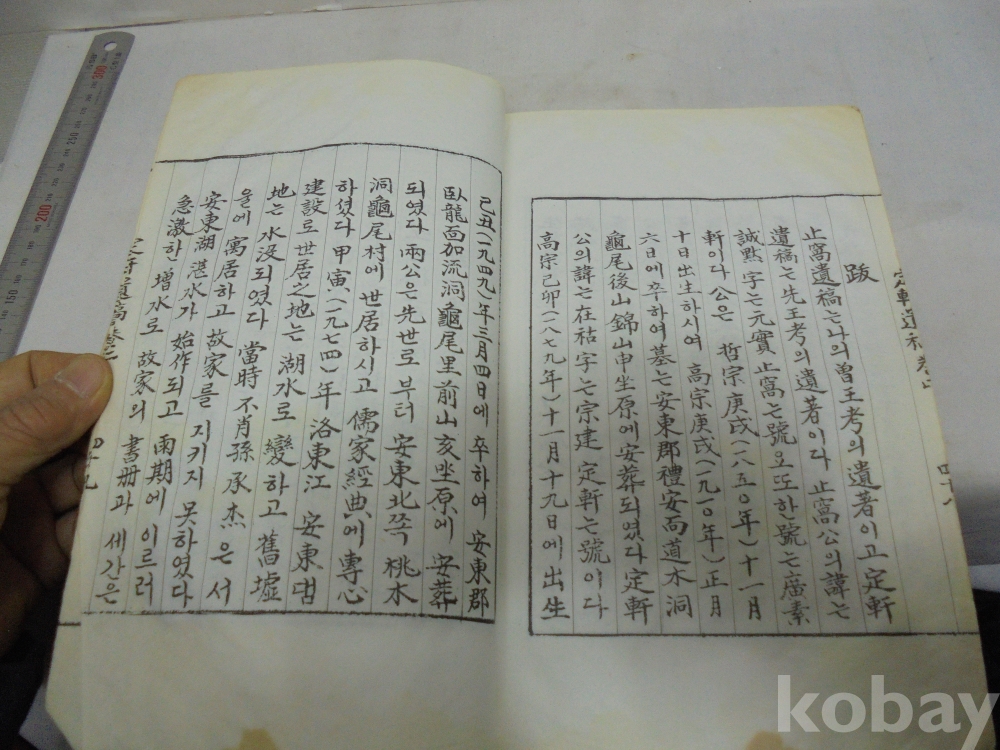 定軒遺稿 卷之 四十八
跋
止窩遺稿는 나의 曾王考의 遺著이고 定軒
遺稿는 先王考의 遺著이다 止窩公의 諱는
誠點 字는 元實 止窩는 號요 또한 號는 廣素
軒이다 公은 哲宗庚戌(一八五○年)十一月
十日出生하시여 高宗庚戌(一九一○年)正月
六日에 卒하여 墓는 安東郡禮安面道木洞
龜尾後山錦山申坐原에 安葬되였다 定軒
公의 諱는 在祜 字는 宗建 定軒는 號이다
高宗己卯(一八七九年)十一月十九日에 出生
己丑(一九四九)年三月四日에 卒하여 安東郡
臥龍面加流洞龜尾里前山亥坐原에 安葬
되였다 兩公은 先世로부터 安東北쪽 桃木
洞龜尾村에 世居하시고 儒家經典에 專心
하셨다 甲寅(一九七四)年 洛東江 安東댐
建設로 世居之地는 湖水로 變하고 舊墟
地는 水没되였다 當時 不肖孫承杰은 서
울에 寓居하고 故家를 지키지 못하였다
安東湖湛水가 始作되고 雨期에 이르러
急激한 增水로 故家의 書册과 세간은
定軒遺稿卷之 四十九
kobay